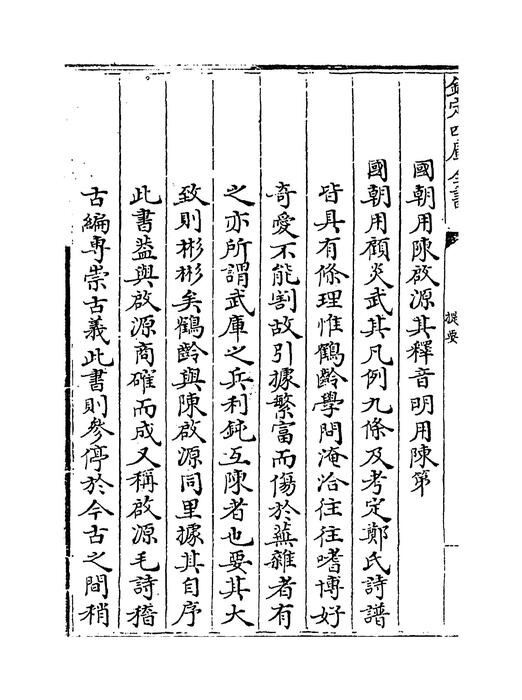 欽定四庫全書
提要
國朝用陳啟源其釋音明用陳第
國朝用顧炎武其凡例九條及考定鄭氏詩譜
皆具有條理惟鶴齡學問淹洽往往嗜博好
奇愛不能割故引據繁富而傷於蕪雜者有
之亦所謂武庫之兵利鈍互陳者也要其大
致則彬彬矣鶴齡與陳啟源同里據其自序
此書葢與啟源商確而成又稱啟源毛詩稽
古編專崇古義此書則參停於今古之間稍